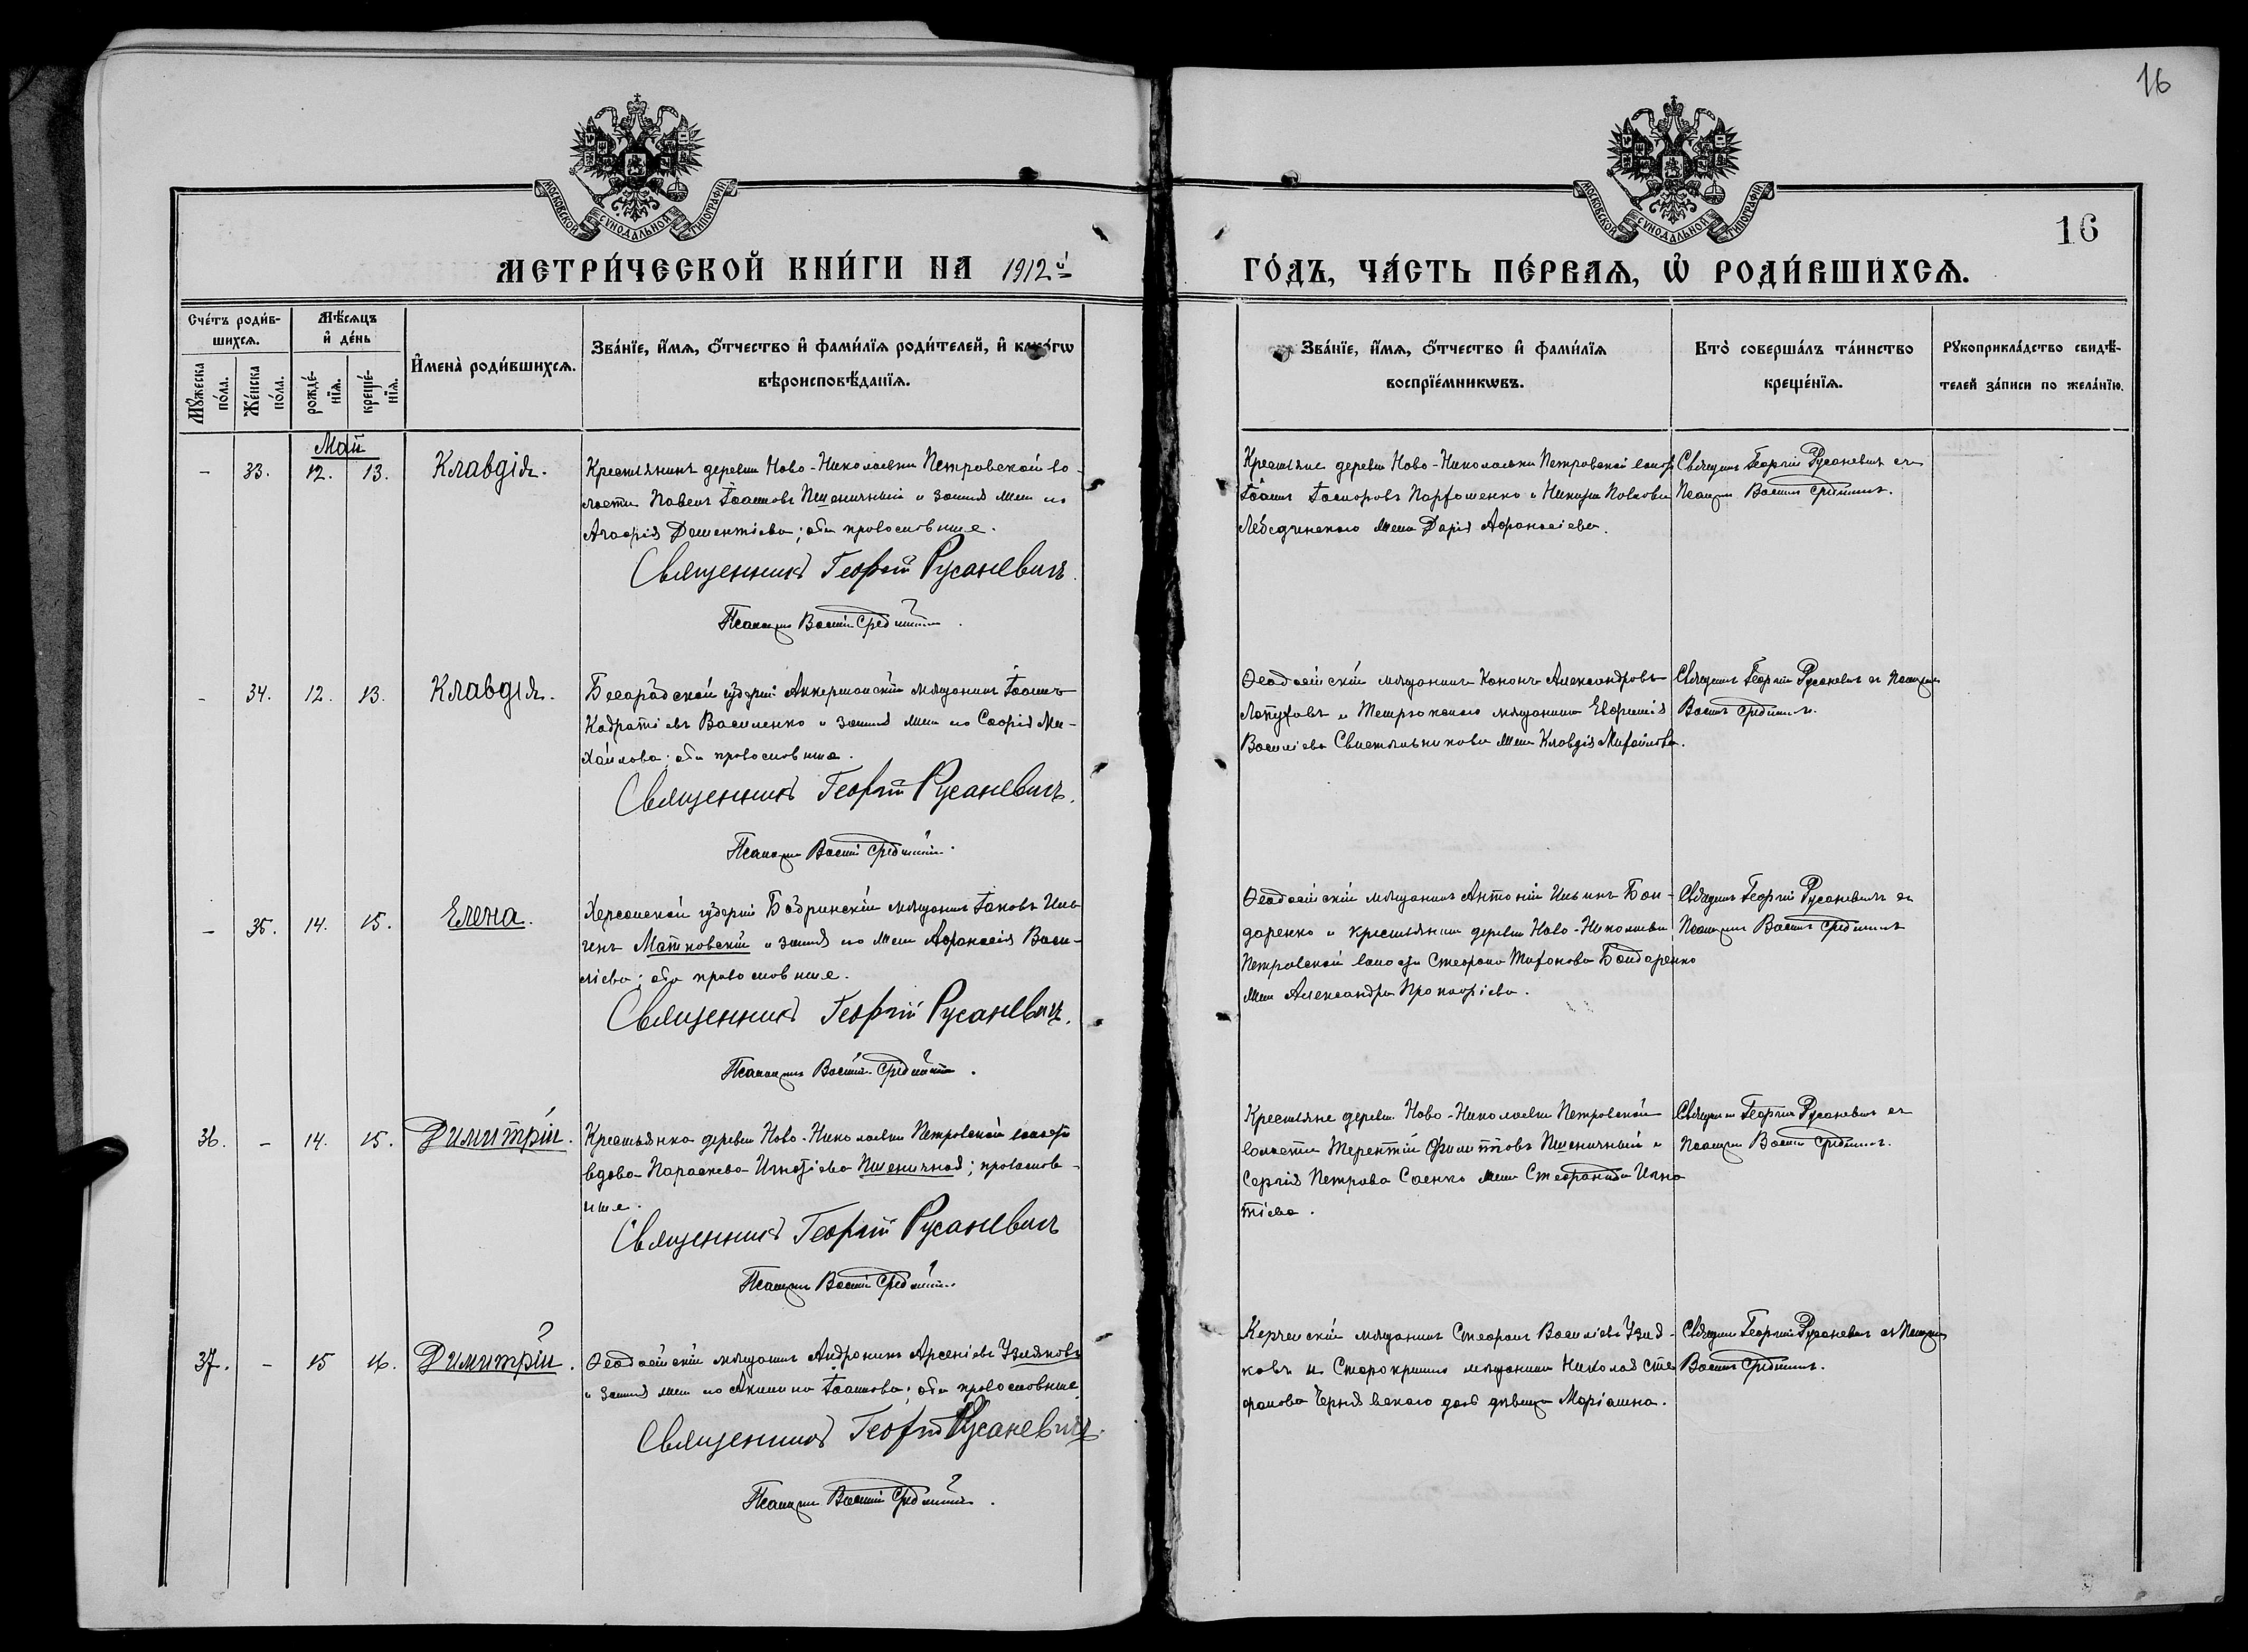 16
МОСКОВСКОЙ СѴНОДАЛЬНОЙ ТИПОГРАФІИ
МОСКОВСКОЙ СѴНОДАЛЬНОЙ ТИПОГРАФІИ
16
МЕТРИ́ЧЕСКОЙ КНИ́ГИ НА 1912й
ГО́ДЪ, ЧА́СТЬ ПЕ́РВАѦ, Ѡ҆ РОДИ́ВШИХСѦ.
Сче́тъ роди́в-
шихсѧ.
Мѣ́сѧцъ
и҆ де́нь
Мꙋ́жеска по́ла.
Же́нска по́ла.
рожде́-нїѧ.
креще́-нїѧ.
И҆мена̀ роди́вшихсѧ.
Зва́нїе, и҆́мѧ, ѻ҆́тчество и҆ фами́лїѧ роди́телей, и҆ како́гѡ
вѣроисповѣ́данїѧ.
Зва́нїе, и҆́мѧ, ѻ҆́тчество и҆ фами́лїѧ
воспрїе́мникѡвъ.
Кто̀ соверша́лъ та́инство
креще́нїѧ.
Рꙋкоприкла́дство свидѣ́-
телей за́писи по жела́нїю.
Май
- 33. 12. 13. Клавдія.
Крестьянинъ деревни Ново-Николаевки Петровской во-
лости Павелъ Іоанновъ Пшеничный и законная жена его
Агафія Дементіева; оба православные.
Священникъ Георгій Русаневичъ.
Псаломщикъ Василій
Крестьяне деревни Ново-Николаевки Петровской волости
Іоаннъ Парфоменко и Никиты Павлова
Лебединскаго жена Дарія Афанасіева.
Священникъ Георгій Русаневичъ съ
Псаломщикомъ Василій
- 34. 12. 13. Клавдія.
Бессарабской губерніи Аккерманскій мѣщанинъ Іоаннъ
Кодратіевъ Василенко и законная жена его Софія Ми-
хайлова; оба православные.
Священникъ Георгій Русаневичъ.
Псаломщикъ Василій
Ѳеодосійскій мѣщанинъ Кононъ Александровъ
Лопуховъ и Темрюкскаго мѣщанина Евфимія
Василіева Свистельникова жена Клавдія Михайлова.
Священникъ Георгій Русаневичъ съ Псаломщ
Василій
- 35. 14. 15. Елена.
Херсонской губерніи Бобринскій мѣщанинъ Іаковъ Иль-
инъ Матковскій и законная его жена Афанасія Васи-
ліева; оба православные.
Священникъ Георгій Русаневичъ.
Псаломщикъ Василій
Ѳеодосійскій мѣщанинъ Антоній Ильинъ Бон-
даренко и крестьянина деревни Ново-Николаевки
Петровской волости Стефана Тихонова Бондаренко
жена Александра Прокофіева.
Священникъ Георгій Русаневичъ съ
Псаломщикомъ Василій
36. - 14. 15. Димитрій.
Крестьянка деревни Ново-Николаевки Петровской волости
вдова Параскева Игнатіева Пшеничная; православ-
ные.
Священникъ Георгій Русаневичъ
Псаломщикъ Василій
Крестьяне деревни Ново-Николаевки Петровской
волости Терентій Филипповъ Пшеничный и
Сергія Петрова Саенко жена Стефанида Игна
тіева.
Священникъ Георгій Русаневичъ съ
Псаломщикомъ Василій
37. - 15 16. Димитрій.
Ѳеодосійскій мѣщанинъ Андроникъ Арсеніевъ Узляковъ
и законная жена его Акилина Іоаннова; оба православные.
Священникъ Георгій Русаневичъ.
Псаломщикъ Василій
Керченскій мѣщанинъ Стефанъ Василіевъ Узля-
ковъ и Старокрымск мѣщанина Николая Сте
фанова Чернявскаго дочь дѣвица Маріанна.
Священникъ Георгій Русаневичъ съ Псаломщ
Василій